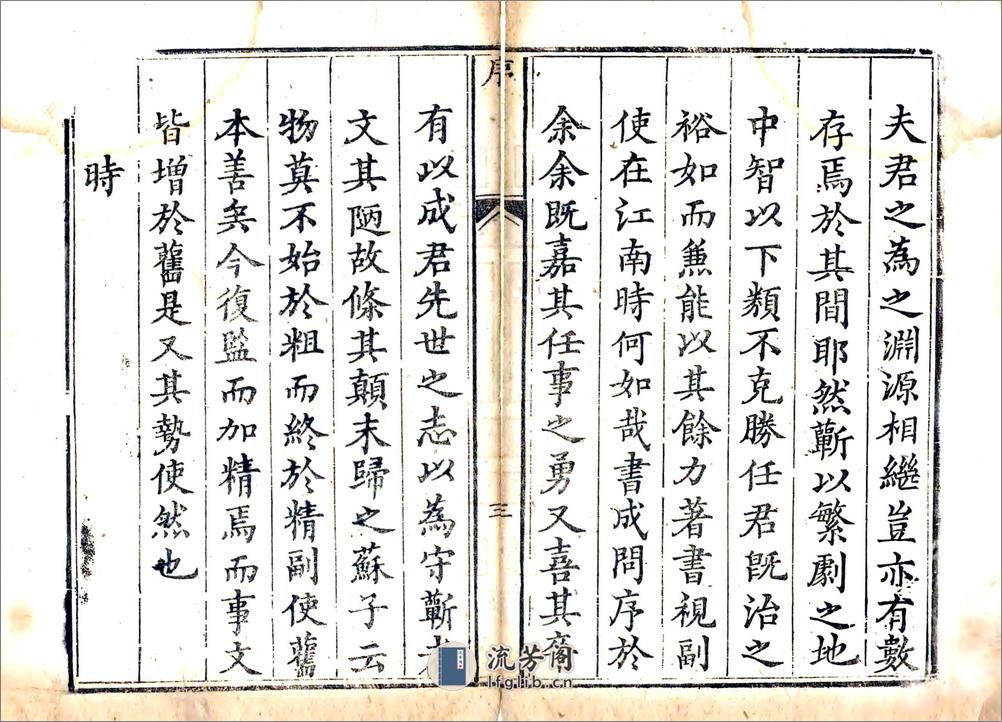 夫君之為之淵源相繼豈亦有數
存焉於其間耶然蘄以繁劇之地
中智以下類不克勝任君旣治之
裕如而兼能以其餘力著書視副
使在江南時何如哉書成問序於
余余既嘉其任事之勇又喜其
序
三
有以成君先世之志以為守蘄
文其陋故條其顛末歸之蘇子云
物莫不始於粗而終於精副使舊
本善矣今復監而加精焉而事文
皆增於舊是又其勢使然也
時
流芳阁
lfglib.cn